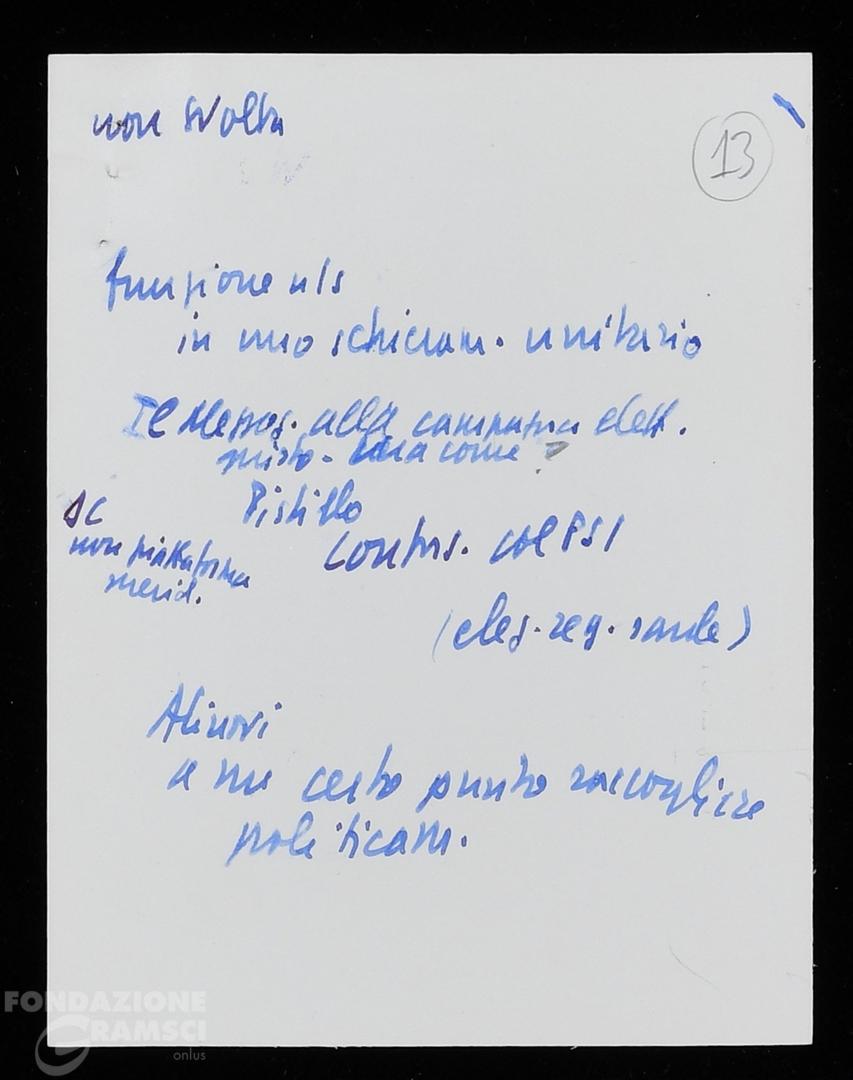 non svolta
13
funzione n/s
in uno schieram. unitario
Il Messag. alla campagna elett.
misto - come
Pistillo
DC
non piattaforma
merid.
Contras. col PSI
(eles. reg. sarde)
Alinovi
a un certo punto raccogliere
politicam.
FONDAZIONE
GRAMSCI
onlus